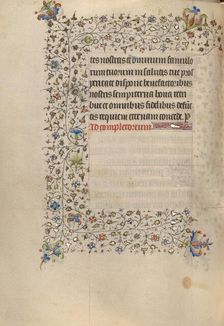 tes nostras et omnium famulo
rum tuorum in salutis tue pros
peritate dispone benefactoribus
nostris sempiterna bona retri
bue et omnibus fidelibus defunc
tis requiem eternam concede. P
Ad completorium